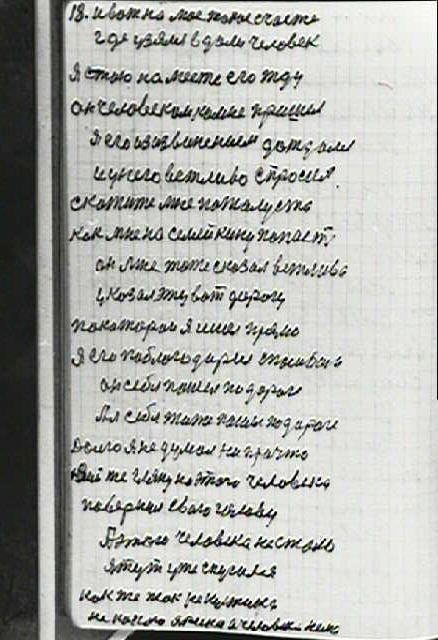 18. и вот на мое такое счастье
где взялся в дали человек
я стою на месте его жду
он человеком ко мне пришол
я его из извинением дождался
и у него ветливо спросил
скажите мне пожалуста
как мне на семейкину попасть
он мне тоже сказал ветливо
указал эту вот дорогу
по каторой я шол прямо
я его поблагодарил спасибо
он себе пошел по дороге
А я себе тоже пошол по дороге
Долго я не думал ни про что
Дай же гляну на этого человека
повернул свою голову
А этого человека не стало
я тут уже
как же так не
не какого я и человека нет